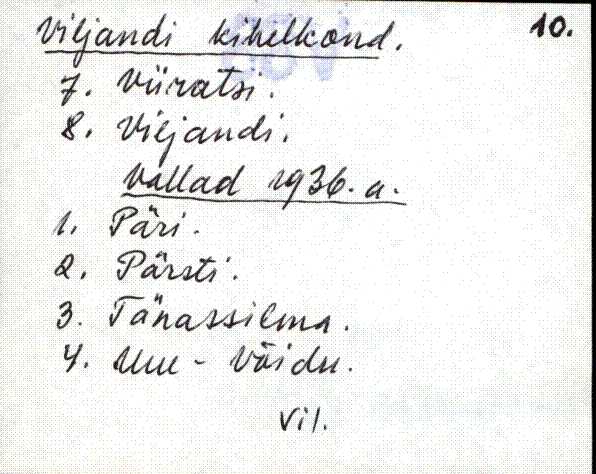 Viljandi kihelkond. 10.
7. Viiratsi.
8. Viljandi.
Vallad 1936. a.
1. Päri.
2. Pärsti.
3. Tänassilma.
4. Uue-Võidu.
Vil.